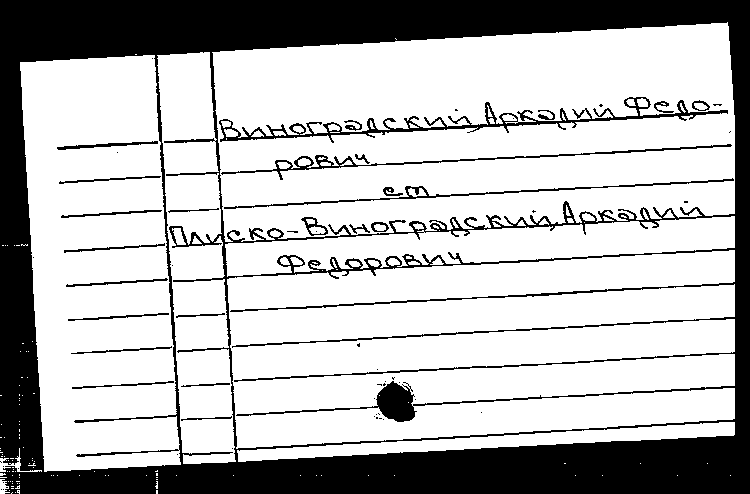 Виноградский, Аркадий Федо-
рович
см.
Плиско-Виноградский, Аркадий
Федорович